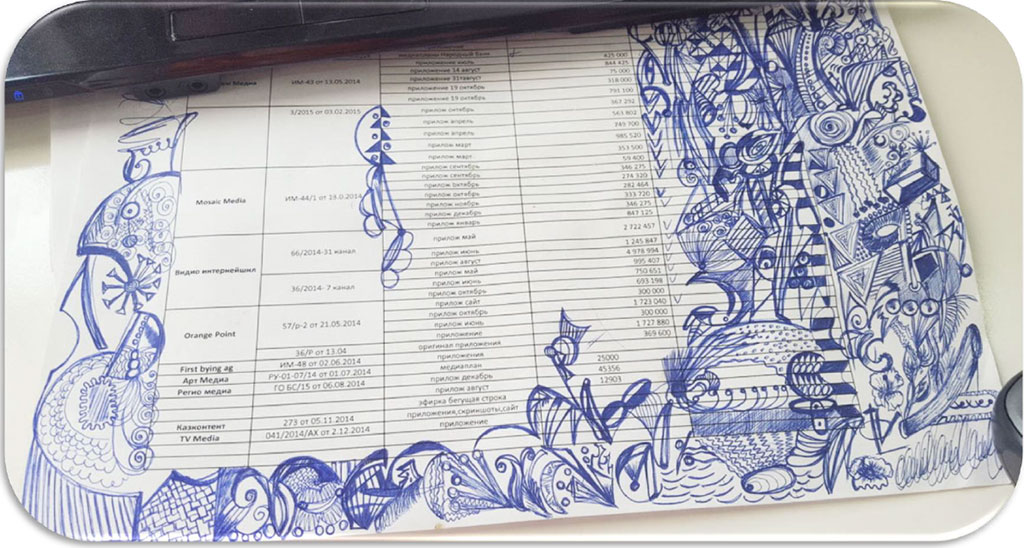 народный банк 425 000
приложение июль 844 425
Медиа ИМ-43 от 13.05.2014 приложение 14 август 75 000
приложение 31август 318 000
приложение 19 октябрь 791 100
приложение 19 октябрь 367 292
3/2015 от 03.02.2015 прилож октябрь 563 802
прилож апрель 749 700
прилож апрель 985 520
прилож март 353 500
прилож март 59 400
прилож сентябрь 346 275
прилож сентябрь 274 320
Mosaic Media ИМ-44/1 от 18.0.2014 прилож октябрь 282 464
прилож октябрь 333 720
прилож ноябрь 346 275
прилож декабрь 847 125
прилож январь
2 722 457
66/2014-31 канал прилож май
1 245 847
прилож июнь 4 978 994
Видио интернейшнл прилож август 995 407
прилож май 750 651
36/2014- 7 канал прилож июнь 693 198
прилож октябрь 300 000
прилож сайт 1 723 040
прилож октябрь 300 000
Orange Point 57/р-2 от 21.05.2014 прилож июнь 1 727 880
приложение 369 600
36/Р от 13.04 оригинал приложения
First bying ag ИМ-48 от 02.06.2014 приложения
Арт Медиа РУ-01-07/14 от 01.07.2014 медиаплан 25000
Регио медиа ГО БС/15 от 06.08.2014 прилож декабрь 45356
прилож август 12903
эфирка бегущая строка
Казконтент 273 от 05.11.2014 приложения,скриншоты,сайт
TV Media 041/2014/АХ от 2.12.2014 приложение